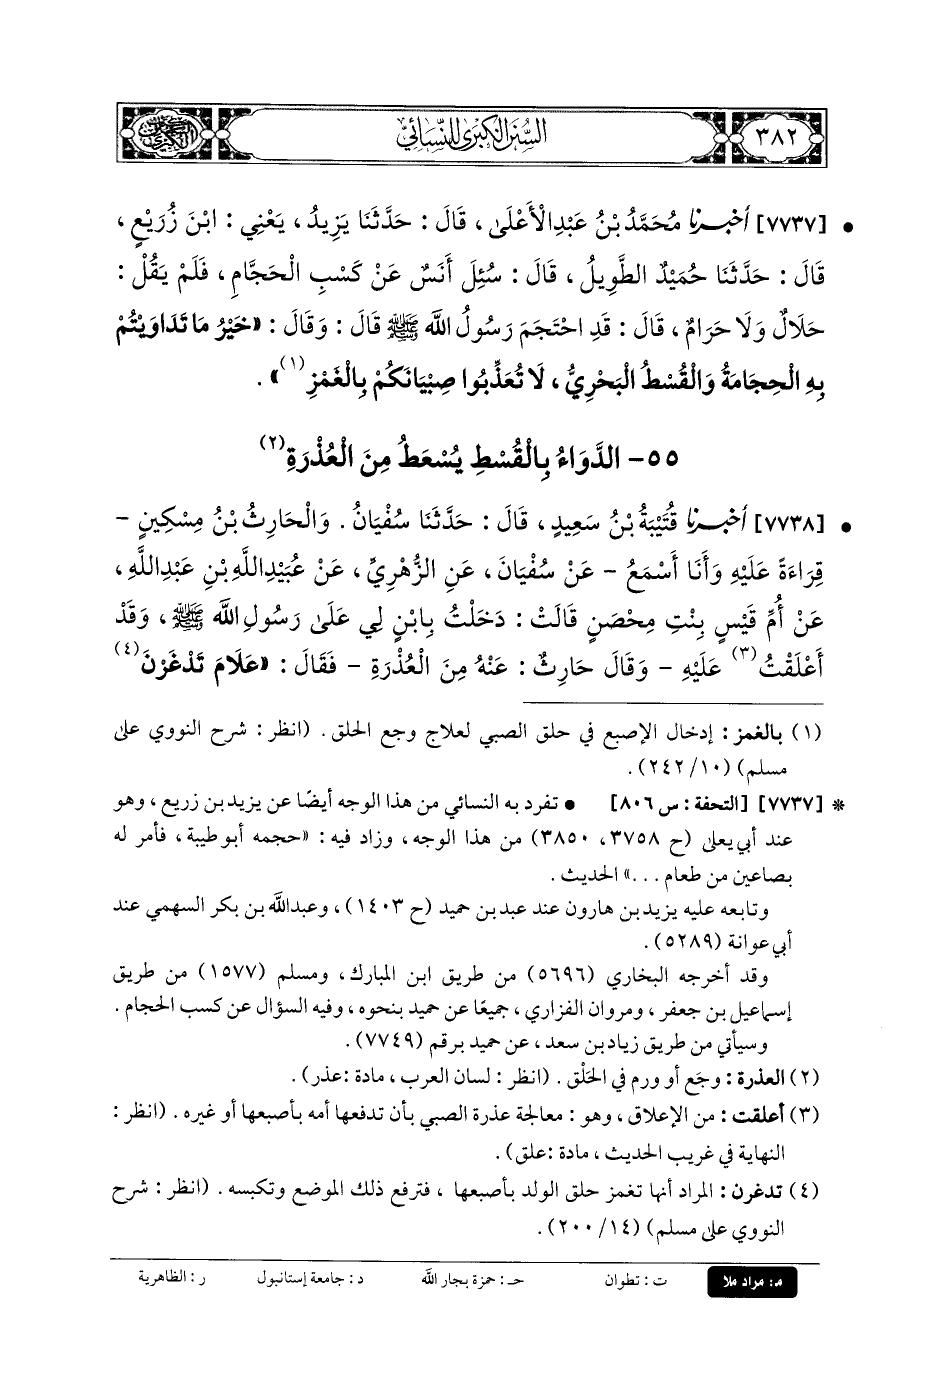 ٣٨٢
السنن الكبرى للنسائي
• [٧٧٣٧] أخبرنا مُحَمَّدُ بْنُ عَبْدِالْأَعْلَى ، قَالَ : حَدَّثَنَا يَزِيدُ ، يَعْنِي : ابْنَ زُرَيْعٍ ،
قَالَ : حَدَّثَنَا حُمَيْدٌ الطَّوِيلُ ، قَالَ : سُئِلَ أَنَسٌ عَنْ كَسْبِ الْحَجَّامِ ، فَلَمْ يَقُلْ :
حَلَالٌ وَلَا حَرَامٌ ، قَالَ : قَدِ احْتَجَمَ رَسُولُ اللَّه ﷺ قَالَ : وَقَالَ : «خَيْرُ مَا تَدَاوَيْتُمْ
بِهِ الْحِجَامَةُ وَالْقُسْطُ الْبَحْرِيُّ ، لَا تُعَذِّبُوا صِبْيَانَكُمْ بِالْغَمْزِ(١)» .
٥٥- الدَّوَاءُ بِالْقُسْطِ يُسْعَطُ مِنَ الْعُذْرَةِ(٢)
• [٧٧٣٨] أخبرنا قُتَيْبَةُ بْنُ سَعِيدٍ ، قَالَ : حَدَّثَنَا سُفْيَانُ . وَالْحَارِثُ بْنُ مِسْكِينٍ -
قِرَاءَةً عَلَيْهِ وَأَنَا أَسْمَعُ - عَنْ سُفْيَانَ ، عَنِ الزُّهْرِيِّ ، عَنْ عُبَيْدِاللَّهِ بْنِ عَبْدِاللَّهِ ،
عَنْ أُمِّ قَيْسٍ بِنْتِ مِحْصَنٍ قَالَتْ : دَخَلْتُ بِابْنٍ لِي عَلَى رَسُولِ اللَّه ﷺ ، وَقَدْ
أَعْلَقْتُ(٣) عَلَيْهِ - وَقَالَ حَارِثٌ : عَنْهُ مِنَ الْعُذْرَةِ - فَقَالَ : «عَلَامَ تَدْغَرْنَ(٤)
(١) بالغمز : إدخال الإصبع في حلق الصبي لعلاج وجع الحلق . (انظر : شرح النووي على
مسلم) (١٠/ ٢٤٢) .
* [٧٧٣٧] [التحفة : س ٨٠٦] • تفرد به النسائي من هذا الوجه أيضًا عن يزيد بن زريع ، وهو
عند أبي يعلى (ح ٣٧٥٨، ٣٨٥٠) من هذا الوجه ، وزاد فيه : «حجمه أبو طيبة ، فأمر له
بصاعين من طعام . . .» الحديث .
وتابعه عليه يزيد بن هارون عند عبد بن حميد (ح ١٤٠٣) ، وعبداللَّه بن بكر السهمي عند
أبي عوانة (٥٢٨٩) .
وقد أخرجه البخاري (٥٦٩٦) من طريق ابن المبارك ، ومسلم (١٥٧٧) من طريق
إسماعيل بن جعفر ، ومروان الفزاري ، جميعًا عن حميد بنحوه ، وفيه السؤال عن كسب الحجام .
وسيأتي من طريق زياد بن سعد ، عن حميد برقم (٧٧٤٩) .
(٢) العذرة : وجَع أو ورم في الحَلْق . (انظر : لسان العرب ، مادة :عذر) .
(٣) أعلقت : من الإعلاق ، وهو : معالجة عذرة الصبي بأن تدفعها أمه بأصبعها أو غيره . (انظر :
النهاية في غريب الحديث ، مادة :علق) .
(٤) تدغرن : المراد أنها تغمز حلق الولد بأصبعها ، فترفع ذلك الموضع وتكبسه . (انظر : شرح
النووي على مسلم) (١٤/ ٢٠٠) .
م: مراد ملا ت : تطوان حـ : حمزة بجار اللَّه د : جامعة إستانبول ر : الظاهرية